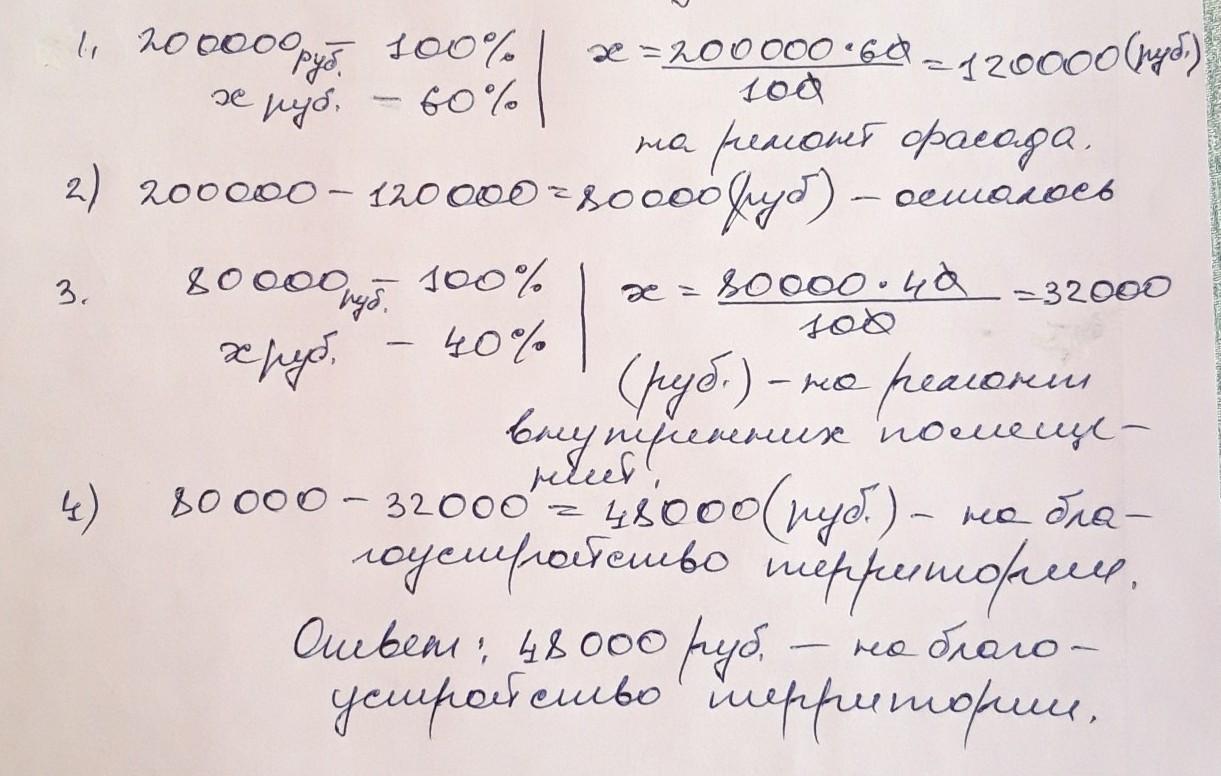 1., 200000 руб. – 100% | x = 200000 · 60 / 100 = 120000 (руб.)
x руб. – 60%
на ремонт фасада.
2) 200000 – 120000 = 80000 (руб) – осталось
3. 80000 руб. – 100% | x = 80000 · 40 / 100 = 32000
x руб. – 40%
(руб.) – на ремонт
внутренних помеще-
ний.
4) 80000 – 32000 = 48000 (руб.) – на бла-
гоустройство территории.
Ответ: 48000 руб. – на благо-
устройство территории.